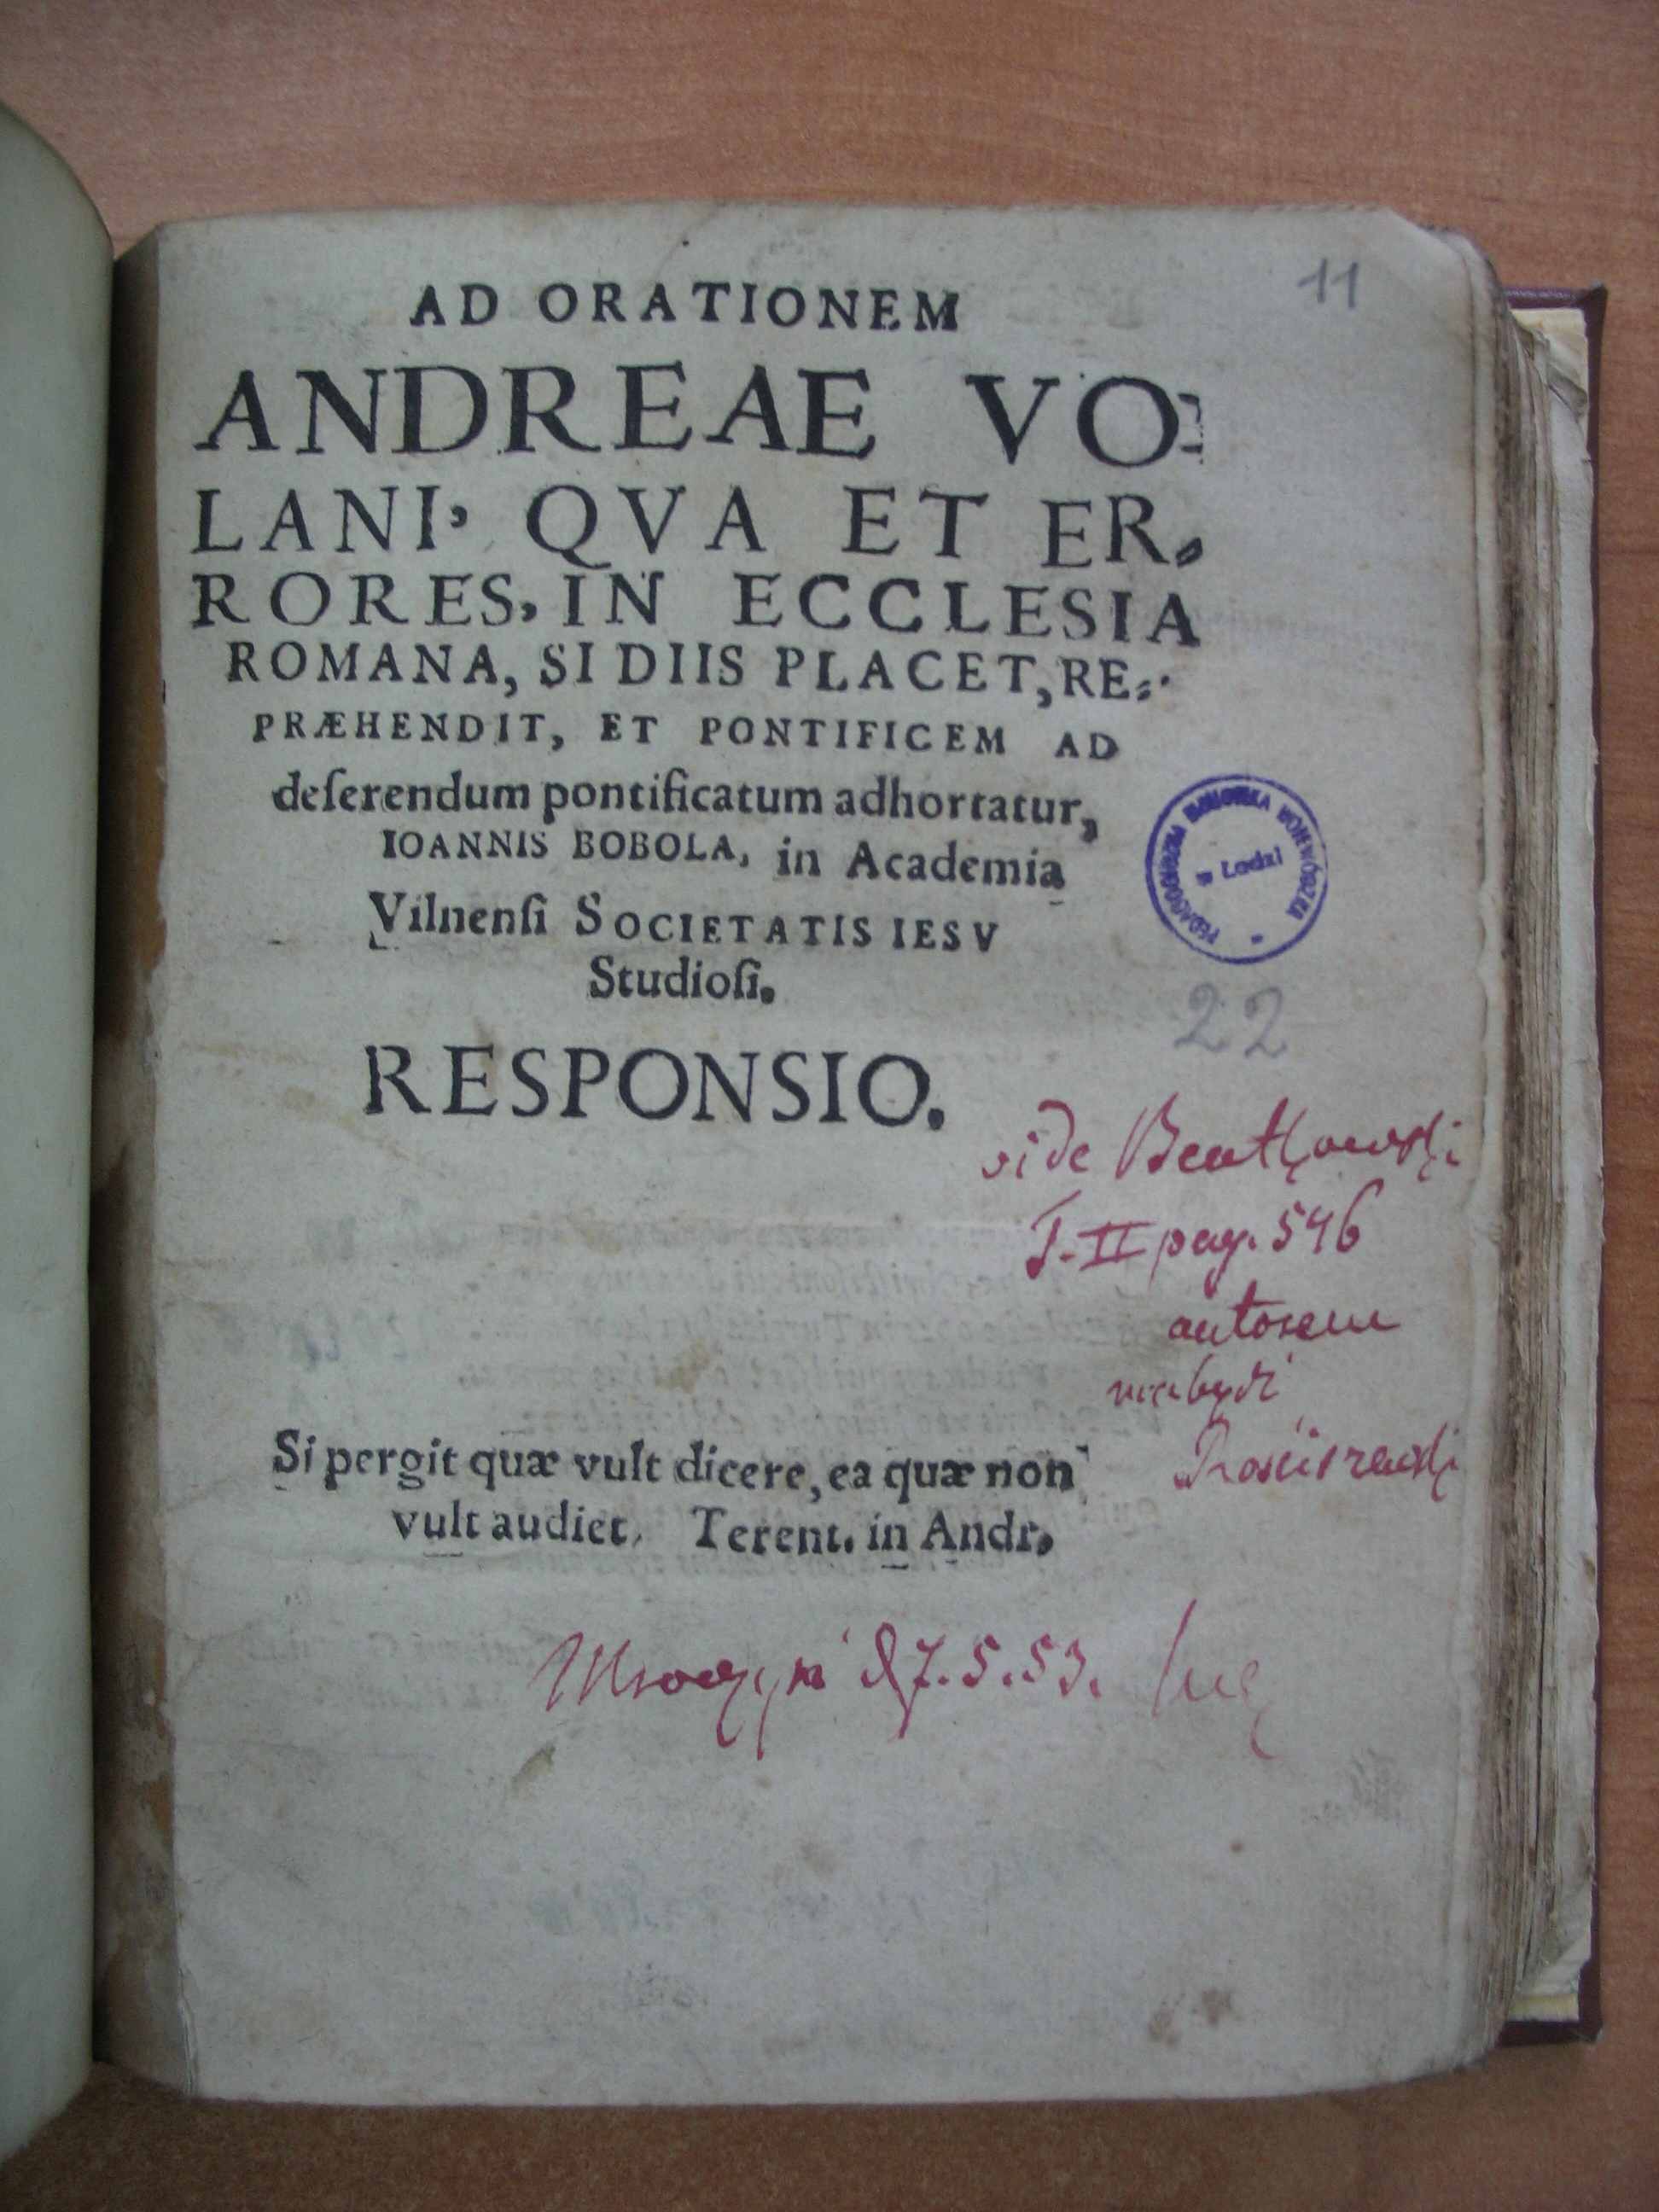 11
AD ORATIONEM
ANDREAE VO-
LANI, QVA ET ER,
RORES, IN ECCLESIA
ROMANA, SI DIIS PLACET, RE-
PRÆHENDIT, ET PONTIFICEM AD
deſerendum pontificatum adhortatur,
IOANNIS BOBOLA, in Academia
Vilnenſi SOCIETATIS IESV
Studioſi.
PEDAGOGICZNA BIBLIOTEKA WOJEWÓDZKA
w Łodzi
22
RESPONSIO.
vide Bentkowski
T. II pag. 546
autorem
ma być
Si pergit quæ vult dicere, ea quæ non
vult audiet. Terent. in Andr.
7.5.53.